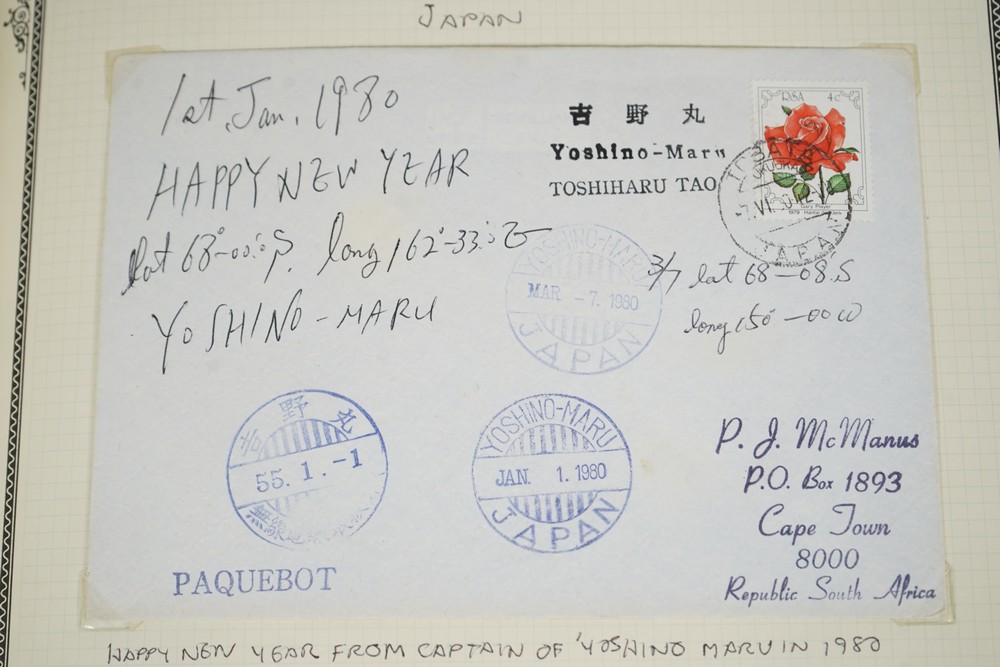 JAPAN
1st. Jan. 1980
HAPPY NEW YEAR
lat 68°-00'.0 S. long 162°-33'.5 E
YOSHINO-MARU
吉野丸
Yoshino-Maru
TOSHIHARU TAO
RSA 4c
Gary Player
1979
JAPAN
YOSHINO-MARU
MAR -7. 1980
JAPAN
3/7 lat 68-08.S
long 150°-00 W
吉野丸
55. 1. -1
無線
YOSHINO-MARU
JAN. 1. 1980
JAPAN
PAQUEBOT
P. J. McManus
P.O. Box 1893
Cape Town
8000
Republic South Africa
HAPPY NEW YEAR FROM CAPTAIN OF 'YOSHINO MARU IN 1980